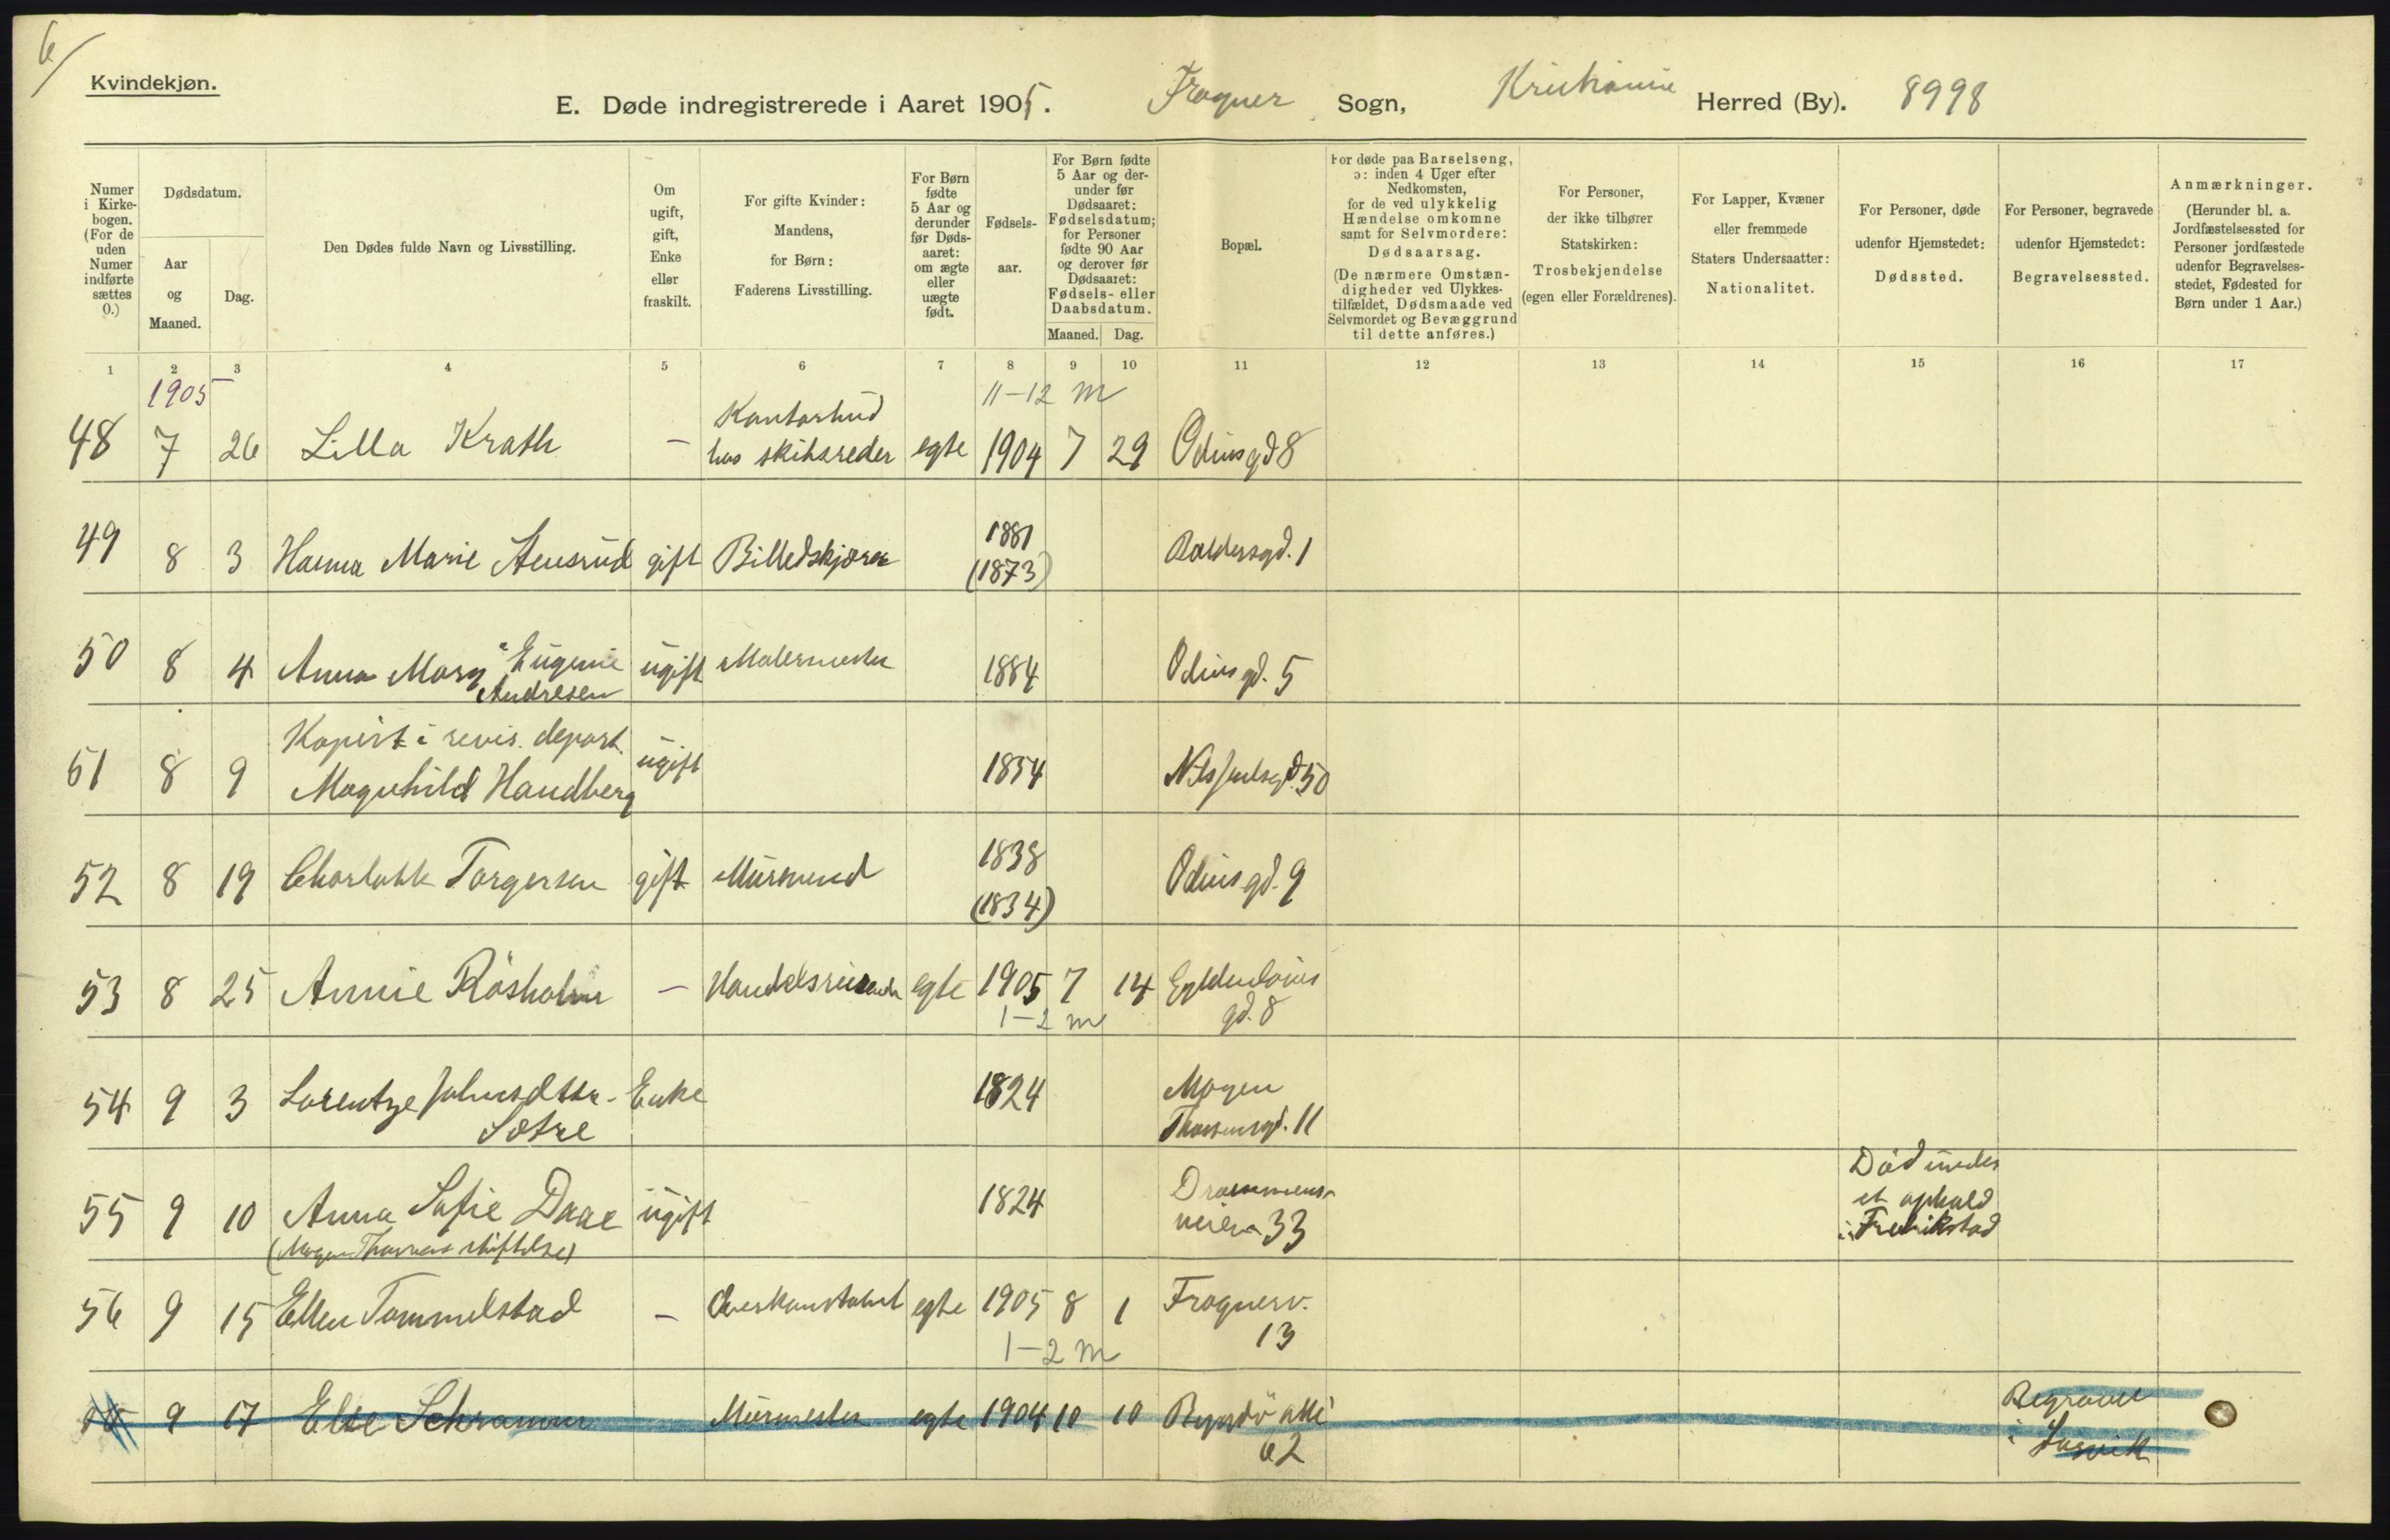 6/
Kvindekjøn.
E. Døde indregistrerede i Aaret 1905. Frogner Sogn, Kristiania Herred (By). 8998
Numer i Kirke-bogen. (For de uden Numer indførte sættes 0.)
Dødsdatum.
Aar og Maaned.
Dag.
Den Dødes fulde Navn og Livsstilling.
Om ugift, gift, Enke eller fraskilt.
For gifte Kvinder: Mandens, for Børn: Faderens Livsstilling.
For Børn fødte 5 Aar og derunder før Døds-aaret: om ægte eller uægte født.
Fødsels-aar.
For Børn fødte 5 Aar og der-under før Dødsaaret: Fødselsdatum; for Personer fødte 90 Aar og derover før Dødsaaret: Fødsels- eller Daabsdatum.
Maaned. Dag.
Bopæl.
For døde paa Barselseng, ɔ: inden 4 Uger efter Nedkomsten, for de ved ulykkelig Hændelse omkomne samt for Selvmordere: Dødsaarsag. (De nærmere Omstæn-digheder ved Ulykkes-tilfældet, Dødsmaade ved Selvmordet og Bevæggrund til dette anføres.)
For Personer, der ikke tilhører Statskirken: Trosbekjendelse (egen eller Forældrenes).
For Lapper, Kvæner eller fremmede Staters Undersaatter: Nationalitet.
For Personer, døde udenfor Hjemstedet: Dødssted.
For Personer, begravede udenfor Hjemstedet: Begravelsessted.
Anmærkninger. (Herunder bl. a. Jordfæstelsessted for Personer jordfæstede udenfor Begravelses-stedet, Fødested for Børn under 1 Aar.)
1 2 3 4 5 6 7 8 9 10 11 12 13 14 15 16 17
1905 11-12 m
Kontorbud
48 7 26 Lilla Krath — hos skibsreder egte 1904 7 29 Odinsgd 8
1881
49 8 3 Hanna Marie Stensrud gift Billedskjærer (1873) Baldersgd. 1
50 8 4 Anna Marg Eugenie ugift Malermester 1884 Odinsgd. 5
Andresen
Kopist i revis. depart.
51 8 9 Magnhild Handberg ugift 1854 Nils Juelsgd. 50
1838
52 8 19 Charlotte Torgersen gift Murmund Odinsgd. 9
(1834)
53 8 25 Annie Rösholm — Handelsreisende egte 1905 7 14 Gyldenløves
1-2 m gd. 8
54 9 3 Lorentze Johnsdttr. Enke 1824 Mogen
Sætre Thorsensgd. 11
Död under
55 9 10 Anna Sofie Daae ugift 1824 Drammens- et ophold
(Mogen Thorsens stiftelse) veien 33 i Fredrikstad
56 9 15 Ellen Tommelstad — Overkonstabel egte 1905 8 1 Frognerv.
1-2 m 13
Begravet
9 17 Else Schramm Murmester egte 1904 10 10 Bygdö allé
62 i